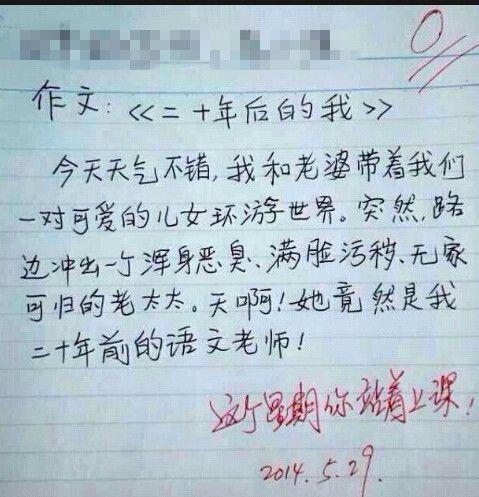 0
作文:《二十年后的我》
今天天气不错,我和老婆带着我们
一对可爱的儿女环游世界。突然,路
边冲出一个浑身恶臭、满脸污秽、无家
可归的老太太。天啊!她竟然是我
二十年前的语文老师!
这个星期你站着上课!
2014.5.29.